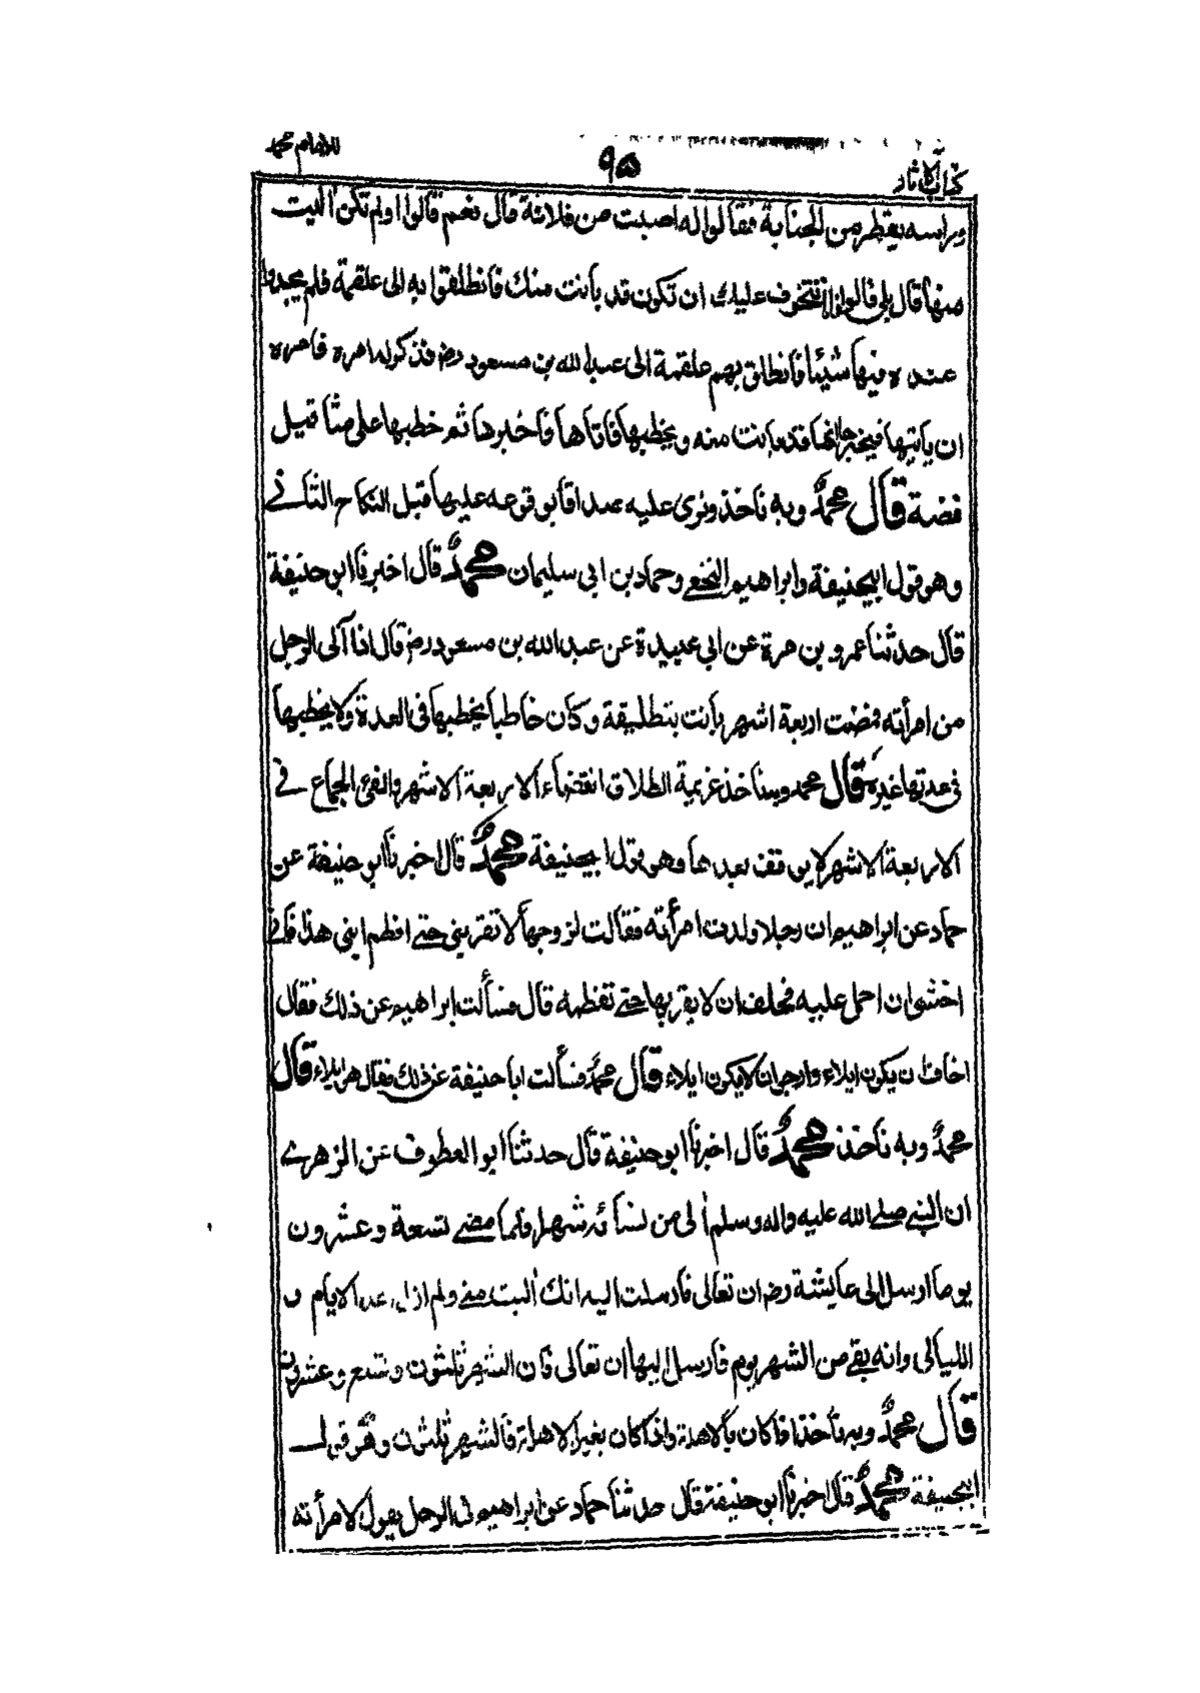 كتاب الآثار ٩٥ للامام محمد
وراسه يقطر من الجنابة فقالوا له اصبت من فلانة قال نعم قالوا اولم تكن آليت
منها قال بلى قالوا فانا نتخوف عليك ان تكون قد بانت منك فانطلقوا به الى علقمة فلم يجدوا
عنده فيها شيئا فانطلق بهم علقمة الى عبد الله بن مسعود رض فذكر له امره فامره
ان ياتيها فيخبرها انها قد بانت منه ويخطبها فاتاها فاخبرها ثم خطبها على مثاقيل
فضة قال محمد وبه ناخذ ونرى عليه صداقا بوقوعه عليها قبل النكاح الثاني
وهو قول ابيحنيفة وابراهيم النخعي وحماد بن ابي سليمان محمد قال اخبرنا ابو حنيفة
قال حدثنا عمرو بن مرة عن ابي عبيدة عن عبد الله بن مسعود رض قال اذا آلى الرجل
من امرأته فمضت اربعة اشهر بانت بتطليقة وكان خاطبا يخطبها في العدة ولا يخطبها
في عدتها غيره قال محمد وبه ناخذ عزيمة الطلاق انقضاء الاربعة الاشهر والفئ الجماع في
الاربعة الاشهر لا يوقف بعدها وهو قول ابيحنيفة محمد قال اخبرنا ابو حنيفة عن
حماد عن ابراهيم ان رجلا ولدت امرأته فقالت لزوجها لا تقربني حتى افطم ابني هذا فاني
اخشى ان احمل عليه فحلف ان لا يقربها حتى تفطمه قال فسألت ابراهيم عن ذلك فقال
اخاف ان يكون ايلاء وارجو ان لا يكون ايلاء قال محمد فسألت ابا حنيفة عن ذلك فقال هو ايلاء قال
محمد وبه ناخذ محمد قال اخبرنا ابو حنيفة قال حدثنا ابو العطوف عن الزهري
ان النبي صلى الله عليه واله وسلم آلى من نسائه شهرا فلما مضى تسعة وعشرون
يوما ارسل الى عايشة رض ان تعالى فارسلت اليه انك آليت مني ولم ازل اعد الايام و
الليالى وانه بقى من الشهر يوم فارسل اليها ان تعالى فان الشهر ثلثون وتسع وعشرون
قال محمد وبه ناخذ اذا كان بالاهلة واذا كان بغير الاهلة فالشهر ثلثون وهو قول
ابيحنيفة محمد قال اخبرنا ابو حنيفة قال حدثنا حماد عن ابراهيم في الرجل يقول لامرأته